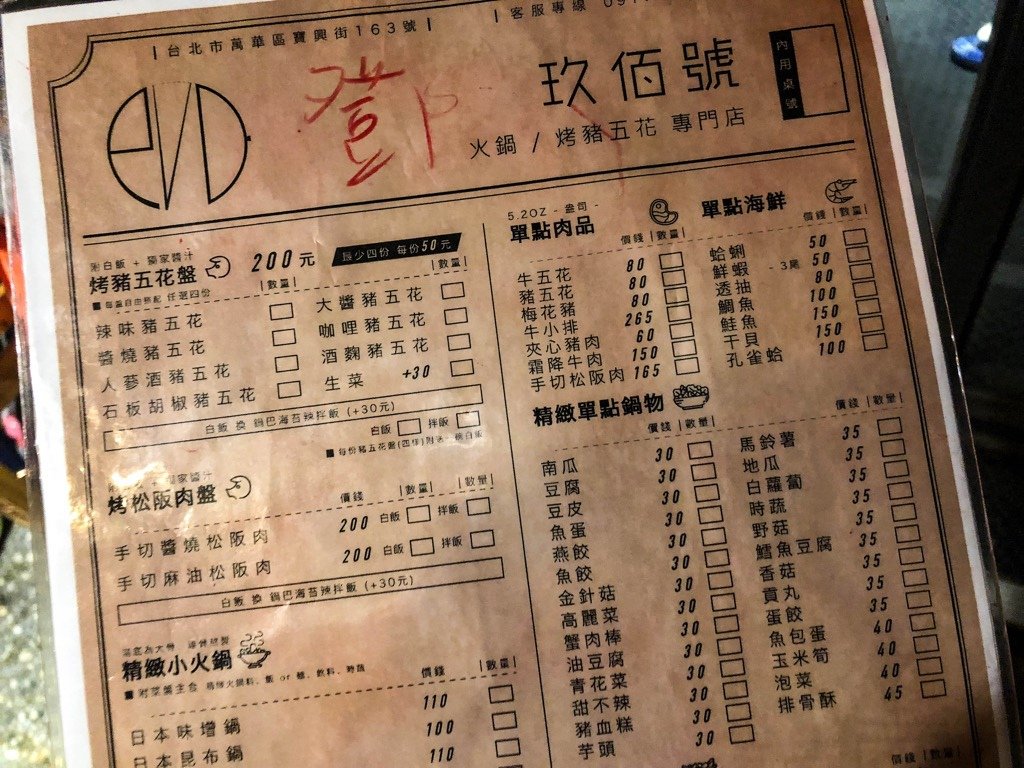 台北市萬華區寶興街163號
客服專線
鄧
玖佰號
火鍋 / 烤豬五花 專門店
內用桌號
附白飯 + 獨家醬汁
烤豬五花盤 200元 最少四份 每份50元
■ 每盤自由搭配 任選四份
數量 數量
辣味豬五花
醬燒豬五花
人蔘酒豬五花
石板胡椒豬五花
大醬豬五花
咖哩豬五花
酒麴豬五花
生菜 +30
白飯 換 鍋巴海苔辣拌飯 (+30元)
白飯 拌飯
烤松阪肉盤
價錢 數量 數量
手切醬燒松阪肉 200 白飯 拌飯
手切麻油松阪肉 200 白飯 拌飯
白飯 換 鍋巴海苔辣拌飯 (+30元)
精緻小火鍋
價錢 數量
日本味增鍋 110
日本昆布鍋 100
110
5.2OZ - 盎司 -
單點肉品
價錢 數量
牛五花 80
豬五花 80
梅花豬 80
牛小排 265
夾心豬肉 60
霜降牛肉 150
手切松阪肉 165
單點海鮮
價錢 數量
蛤蜊 50
鮮蝦 - 3尾 50
透抽 80
鯛魚 100
鮭魚 150
干貝 150
孔雀蛤 100
精緻單點鍋物
價錢 數量
南瓜 30
豆腐 30
豆皮 30
魚蛋 30
燕餃 30
魚餃 30
金針菇 30
高麗菜 30
蟹肉棒 30
油豆腐 30
青花菜 30
甜不辣 30
豬血糕 30
芋頭 30
價錢 數量
馬鈴薯 35
地瓜 35
白蘿蔔 35
時蔬 35
野菇 35
鱈魚豆腐 35
香菇 35
貢丸 35
蛋餃 35
魚包蛋 40
玉米筍 40
泡菜 40
排骨酥 45
價錢 數量